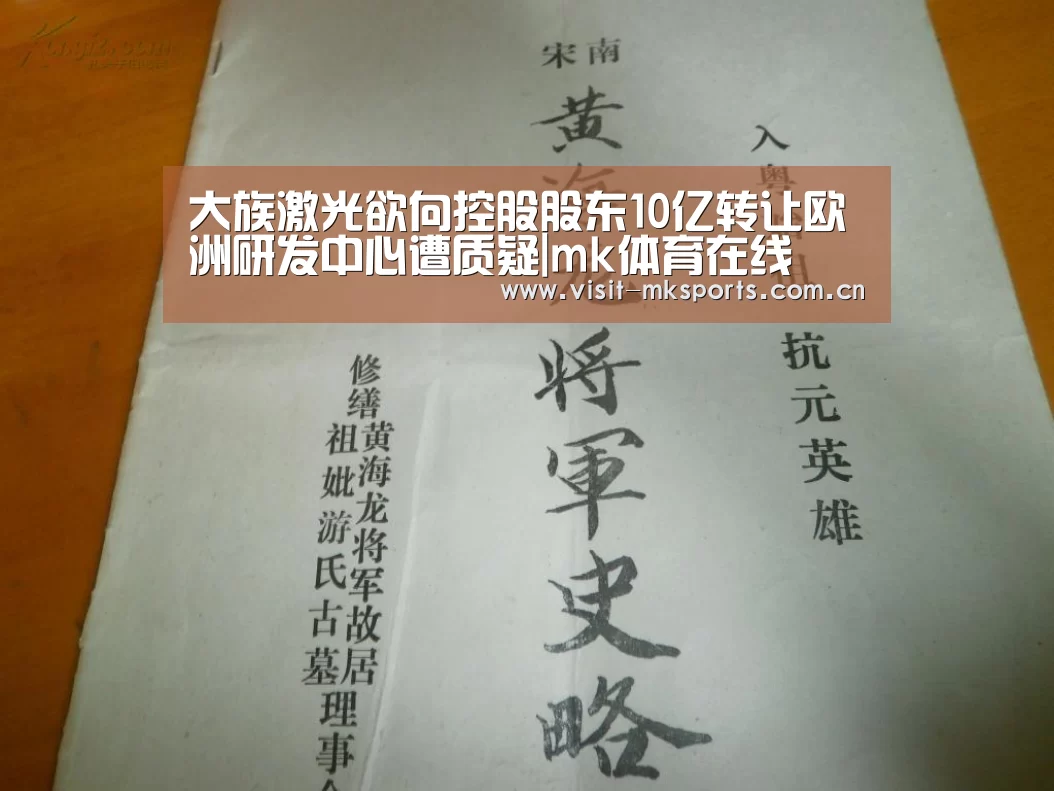 南宋
黄海龙将軍史略
入粤始祖
抗元英雄
修缮黄海龙将军故居
祖妣游氏古墓理事会
大族激光欲向控股股东10亿转让欧
洲研发中心遭质疑|mk体育在线
www.visit-mksports.com.cn